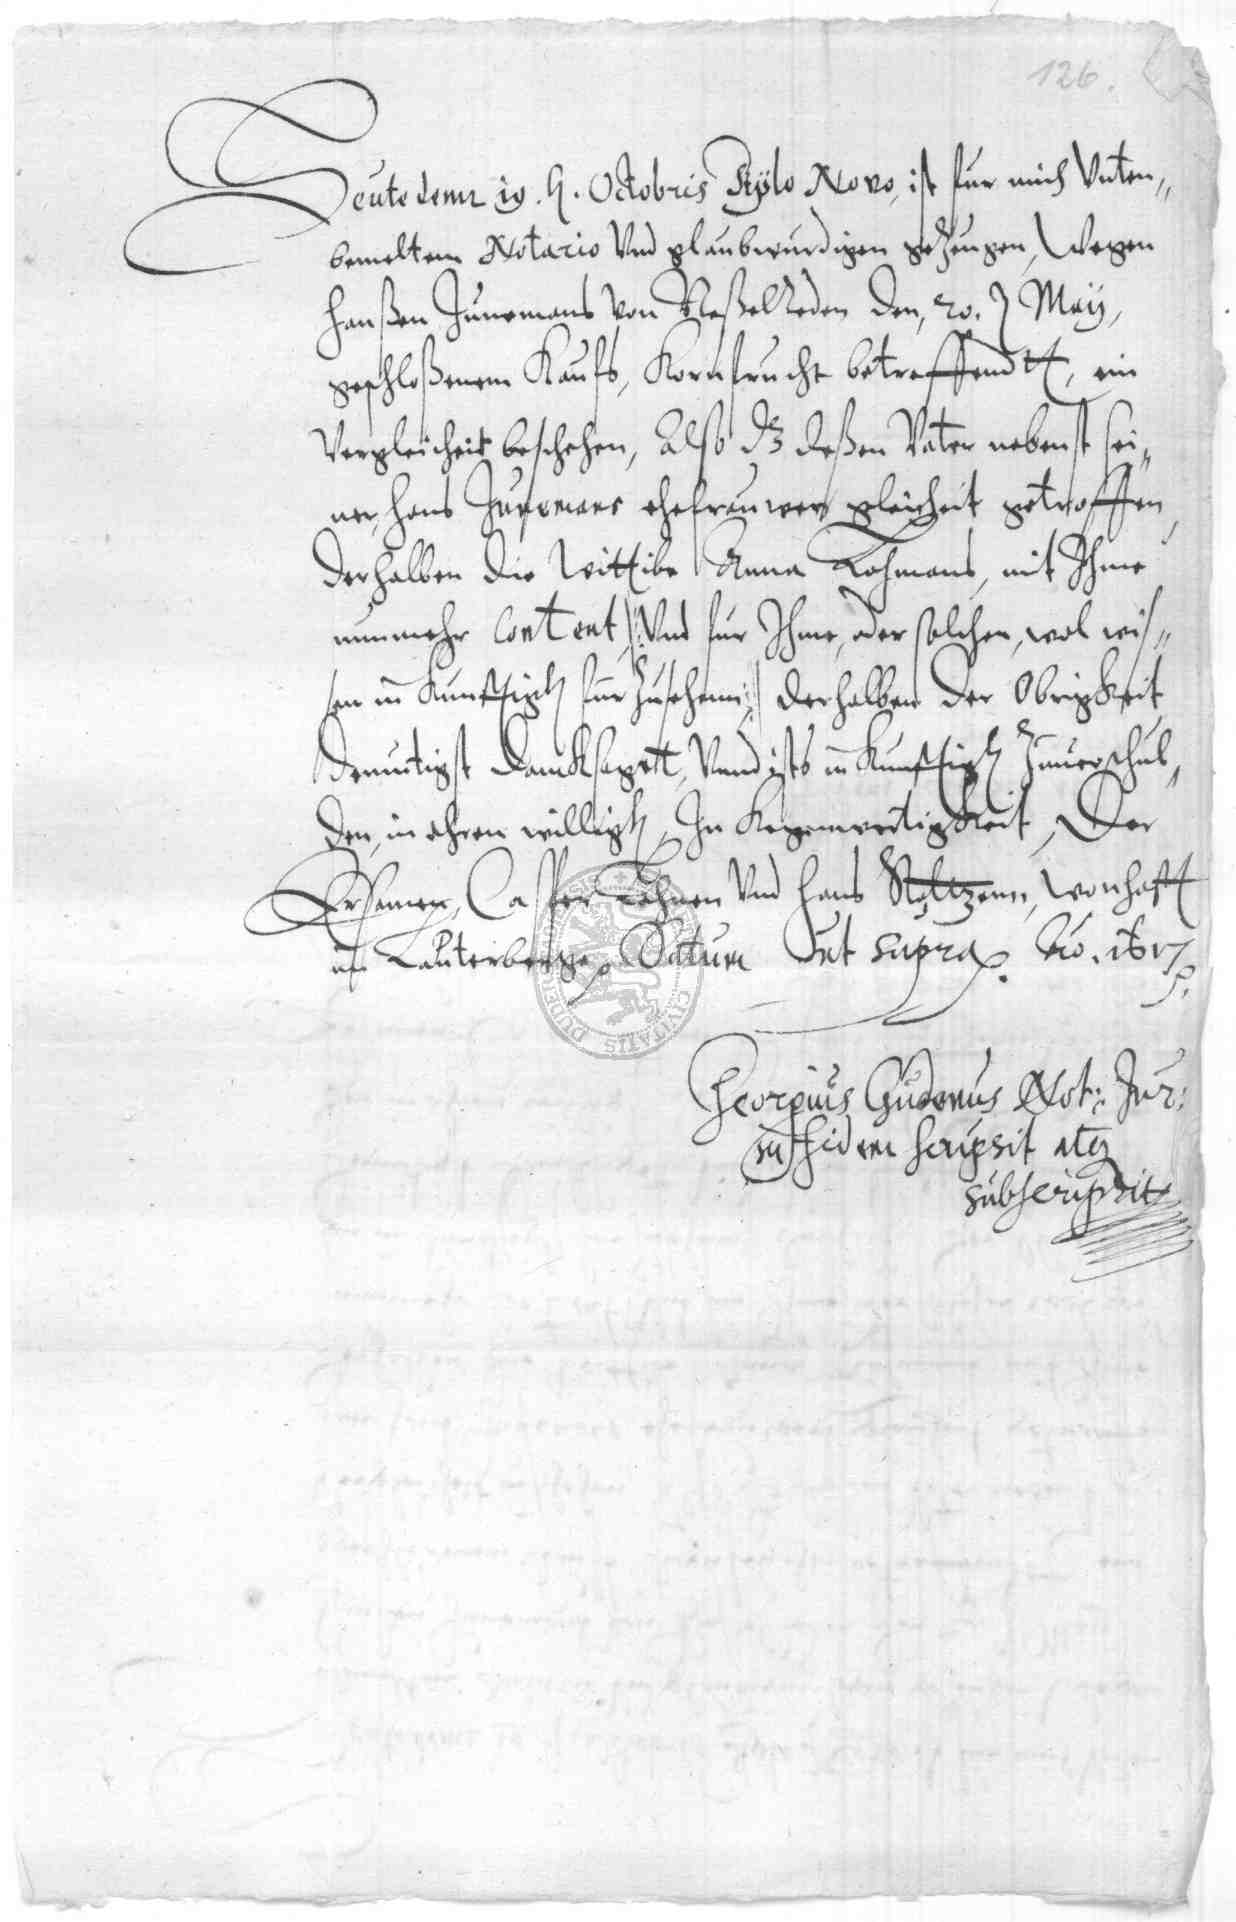 126.
Heute denn 19. h. Octobris Stÿlo Novo, ist fur mich Unten„
bemeltem Notario Und glaubwurdigen gezeugen, Wegen
Hanßen Junemans Von Neßelreden den, 20. Maÿ,
geschloßenem Kaufs, Kornfrucht betreffendtt, ein
Vergleicheit beschehen, Also dz deßen Vater nebenst sei„
ner, Hans Junemans ehefrauwen gleicheit getroffen,
derhalben die Wittibe Anna Lohmans, mit Ihme
nunmehr Content, Und fur Ihme, oder solchen, wol wis„
sen in Kunfftigh fur zusehenn, derhalben der Obrigkeit
demutigst Damksagett, Unnd ists in Kunfftigh Zuuerschul„
den, in ehren willigh, In Kegenwertigkeit, Der
Ersamen, Casper Lohnen Und Hans Noltzenn, wonhafft
im Lauterberge. Datum Ut supra. Ao. 1617.
SIGILLUM CIVITATIS
Georgius Gudenus Not: Jur:
in fidem scripsit atq
subscripsit